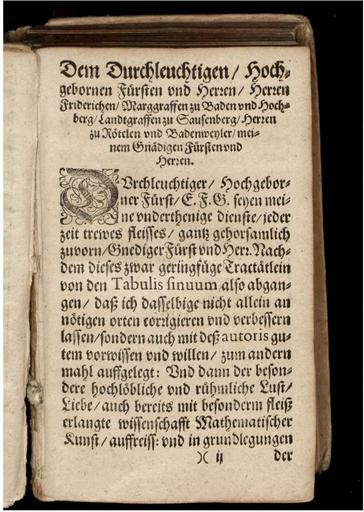 Dem Durchleuchtigen / Hoch⸗
gebornen Fürsten vnd Herren / Herren
Friderichen / Marggraffen zu Baden vnd Hoch⸗
berg / Landtgraffen zu Sausenberg / Herren
zu Rötelen vnd Badenweyler / mei⸗
nem Gnädigen Fürsten vnd
Herren.
DVrchleuchtiger / Hochgebor⸗
ner Fürst / E. F. G. seyen mei⸗
ne vnderthenige dienste / jeder
zeit trewes fleisses / gantz gehorsamlich
zuvorn / Gnediger Fürst vnd Herr. Nach⸗
dem dieses zwar geringfüge Tractätlein
von den Tabulis sinuum, also abgan⸗
gen / daß ich dasselbige nicht allein an
nötigen orten corrigieren vnd verbessern
lassen / sondern auch mit deß autoris gu⸗
tem vorwissen vnd willen / zum andern
mahl auffgelegt: Vnd dann der beson⸗
dere hochlöbliche vnd rühmliche Lust /
Liebe / auch bereits mit besonderm fleiß
erlangte wissenschafft Mathematischer
Kunst / auffreiss: vnd in grundlegungen
)( ij der